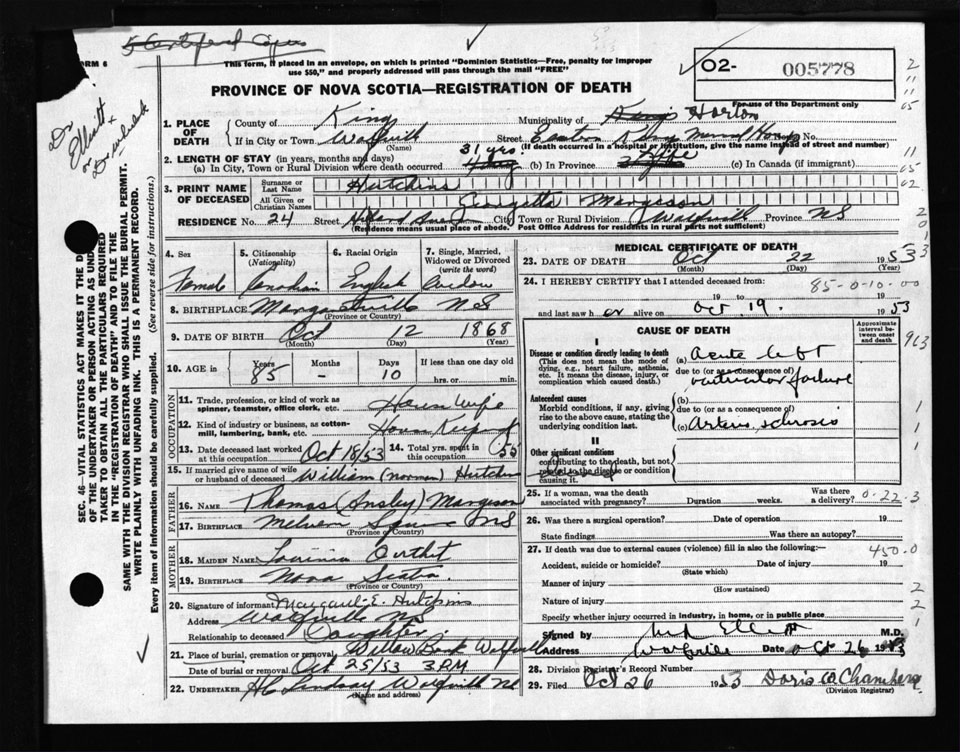 5 Certified Copies
FORM 6
This form, if placed in an envelope, on which is printed "Dominion Statistics—Free, penalty for improper
use $50," and properly addressed will pass through the mail "FREE"
O2- 005778
For use of the Department only
PROVINCE OF NOVA SCOTIA—REGISTRATION OF DEATH
Dr Elliott
or
SEC. 46—VITAL STATISTICS ACT MAKES IT THE
OF THE UNDERTAKER OR PERSON ACTING AS UND
TAKER TO OBTAIN ALL THE PARTICULARS REQUIRED
IN THE "REGISTRATION OF DEATH" AND TO FILE THE
SAME WITH THE DIVISION REGISTRAR WHO SHALL ISSUE THE BURIAL PERMIT.
WRITE PLAINLY WITH UNFADING INK. THIS IS A PERMANENT RECORD.
Every item of information should be carefully supplied. (See reverse side for instructions.)
1. PLACE OF DEATH
County of Kings Municipality of Kings Horton
If in City or Town Wolfville Street Eastern Kings Memorial Hosp No.
(Name) (If death occurred in a hospital or institution, give the name instead of street and number)
2. LENGTH OF STAY (in years, months and days)
(a) In City, Town or Rural Division where death occurred 31 yrs. (b) In Province Life (c) In Canada (if immigrant)
3. PRINT NAME OF DECEASED
Surname or Last Name Hutchins
All Given or Christian Names Georgetta Margeson
RESIDENCE No. 24 Street City, Town or Rural Division Wolfville Province NS
(Residence means usual place of abode. Post Office Address for residents in rural parts not sufficient)
4. Sex Female
5. Citizenship (Nationality) Canadian
6. Racial Origin English
7. Single, Married, Widowed or Divorced (write the word) Widow
8. BIRTHPLACE Margaretsville NS
(Province or Country)
9. DATE OF BIRTH Oct 12 1868
(Month) (Day) (Year)
10. AGE in Years 85 Months - Days 10 If less than one day old
hrs. or min.
OCCUPATION
11. Trade, profession, or kind of work as
spinner, teamster, office clerk, etc. Housewife
12. Kind of industry or business, as cotton-
mill, lumbering, bank, etc. House Keeping
13. Date deceased last worked at this occupation Oct 18/53
14. Total yrs. spent in this occupation 55
15. If married give name of wife
or husband of deceased William (Norman) Hutchins
FATHER
16. NAME Thomas (Ansley) Margeson
17. BIRTHPLACE Melvern Square NS
(Province or Country)
MOTHER
18. MAIDEN NAME Outhit
19. BIRTHPLACE Nova Scotia
(Province or Country)
20. Signature of informant Margaret E. Hutchins
Address Wolfville NS
Relationship to deceased Daughter
21. Place of burial, cremation or removal Willow Bank Wolfville
Date of burial or removal Oct 25/53 3 P.M
22. UNDERTAKER Lindsay Wolfville NS
(Name and address)
MEDICAL CERTIFICATE OF DEATH
23. DATE OF DEATH Oct 22 1953
(Month) (Day) (Year)
24. I HEREBY CERTIFY that I attended deceased from:
85-0-10-00
19 to 19
and last saw her alive on Oct 19. 1953
CAUSE OF DEATH
Approximate interval between onset and death
I
Disease or condition directly leading to death
(This does not mean the mode of
dying, e.g., heart failure, asthenia,
etc. It means the disease, injury, or
complication which caused death.)
(a) Acute left
due to (or as a consequence of)
ventricular failure
Antecedent causes
Morbid conditions, if any, giving
rise to the above cause, stating the
underlying condition last.
(b)
due to (or as a consequence of)
(c) Arterio sclerosis
II
Other significant conditions
contributing to the death, but not
related to the disease or condition
causing it.
963
25. If a woman, was the death associated with pregnancy? Duration weeks. Was there a delivery?
0-22-3
26. Was there a surgical operation? Date of operation 19
State findings Was there an autopsy?
27. If death was due to external causes (violence) fill in also the following:—
450-0
Accident, suicide or homicide? Date of injury 19
(State which)
Manner of injury
(How sustained)
Nature of injury
Specify whether injury occurred in industry, in home, or in public place
Signed by Elliott M.D.
Address Wolfville Date Oct 26 1953
28. Division Registrar's Record Number
29. Filed Oct 26 1953 Doris
(Division Registrar)